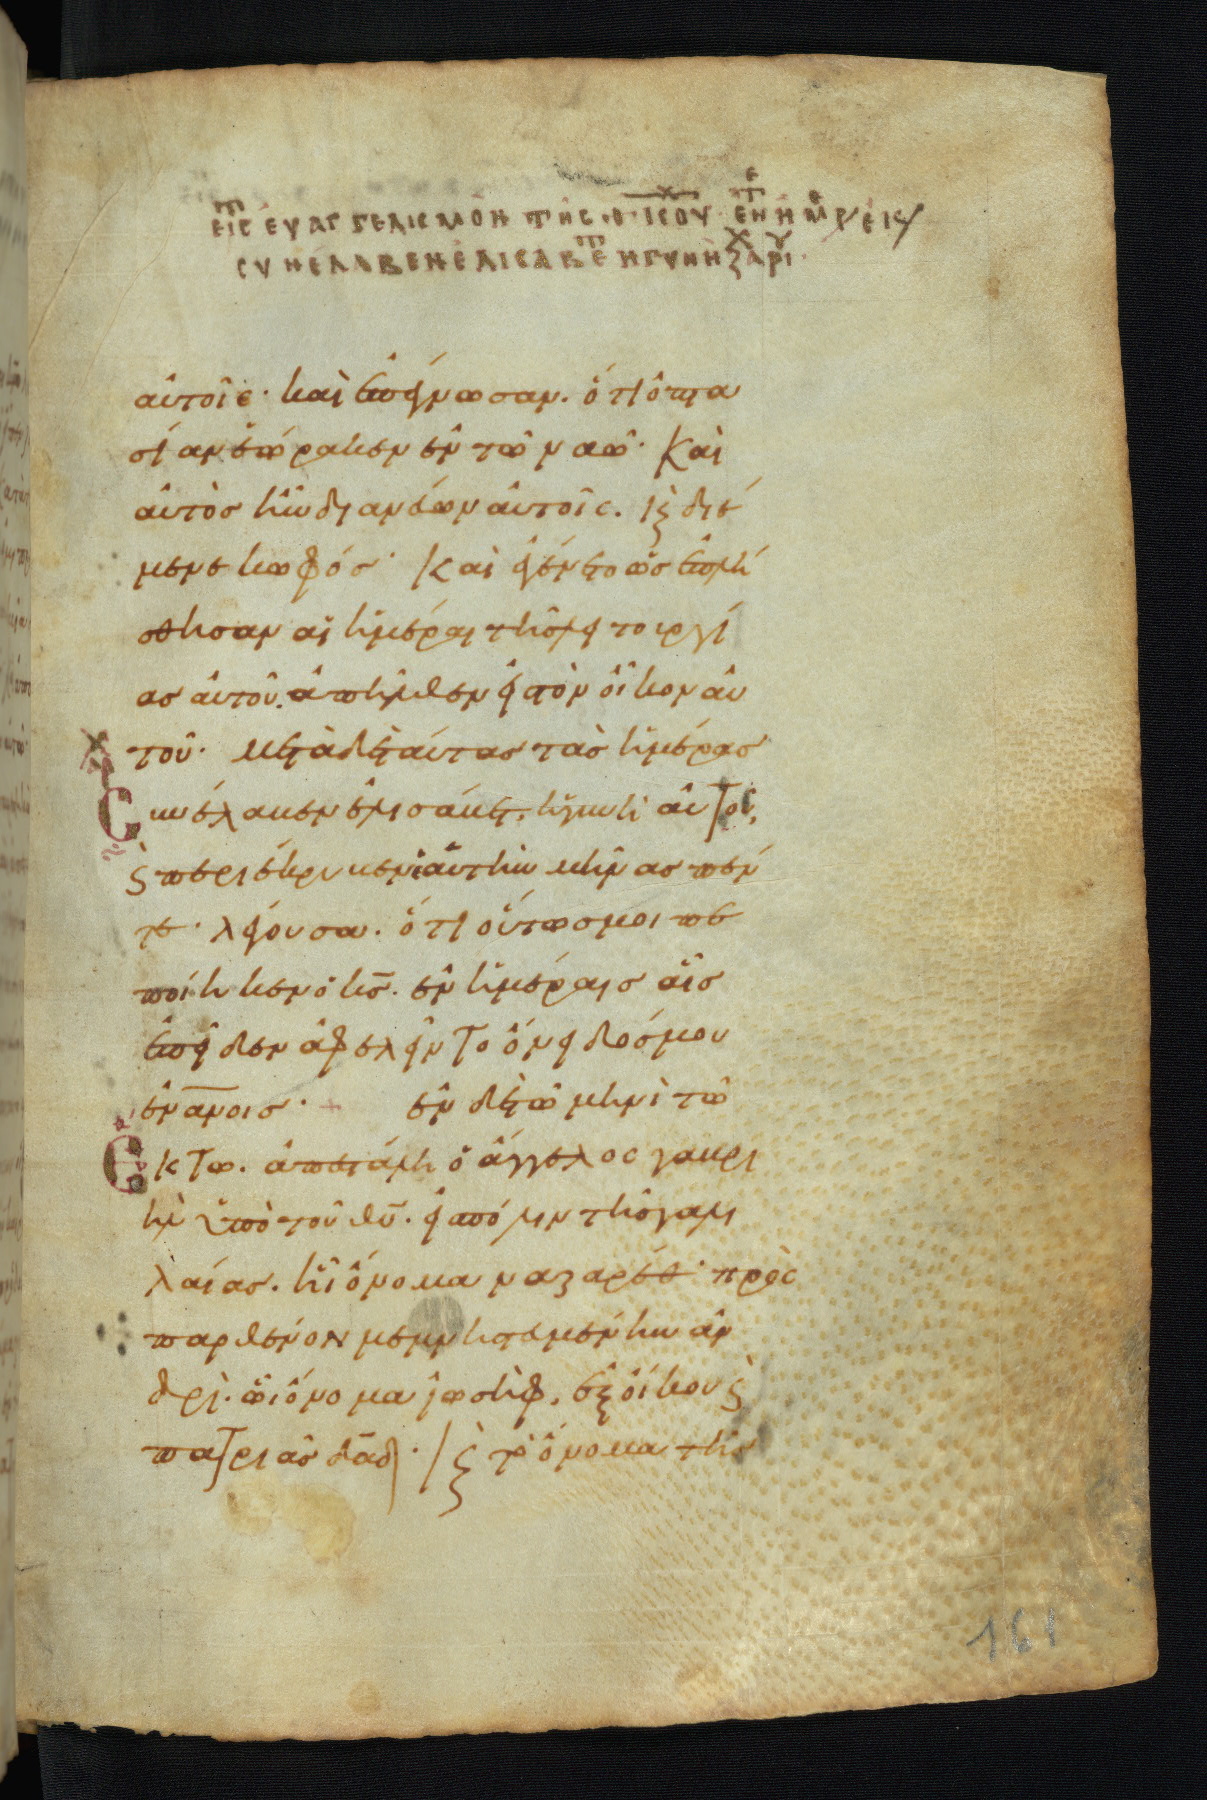 εἰς εὐαγγελισμὸν τῆς θ̅κου
συνέλαβεν ἐλισάβετ ἡ γυνὴ ζαχαρίου
αὐτοῖς· καὶ ἐπέγνωσαν. ὅτι ὀπτα
σίαν ἑώρακεν ἐν τῷ ναῷ· Καὶ
αὐτὸς ἦν διανεύων αὐτοῖς. ϗ διέ
μενε κωφός· Καὶ ἐγένετο ὡς ἐπλή
σθησαν αἱ ἡμέραι τῆς λειτουργί
ας αὐτοῦ. ἀπῆλθεν εἰς τὸν οἶκον αὐ
τοῦ· μετὰ δὲ ταύτας τὰς ἡμέρας
Συνέλαβεν ἐλισάβετ, ἡ γυνὴ αὐτοῦ,
ϗ περιέκρυβεν ἑαυτὴν μῆνας πέν
τε· λέγουσα. ὅτι οὕτως μοι πε
ποίηκεν ὁ κ̅ς̅. ἐν ἡμέραις αἷς
ἐπεῖδεν ἀφελεῖν τὸ ὄνειδός μου
ἐν α̅ν̅οις· + ἐν δὲ τῷ μηνὶ τῷ
Ἑκτῳ. ἀπεστάλη ὁ ἄγγελος γαβρι
ὴλ ὑπὸ τοῦ θ̅υ̅. εἰς πόλιν τῆς γαλι
λαίας. ᾗ ὄνομα ναζαρέθ· πρὸς
παρθένον μεμνηστευμένην ἀν
δρί. ᾧ ὄνομα ἰωσήφ, ἐξ οἴκου ϗ
πατριᾶς δ̅α̅δ̅· ϗ τὸ ὄνομα τῆς
161